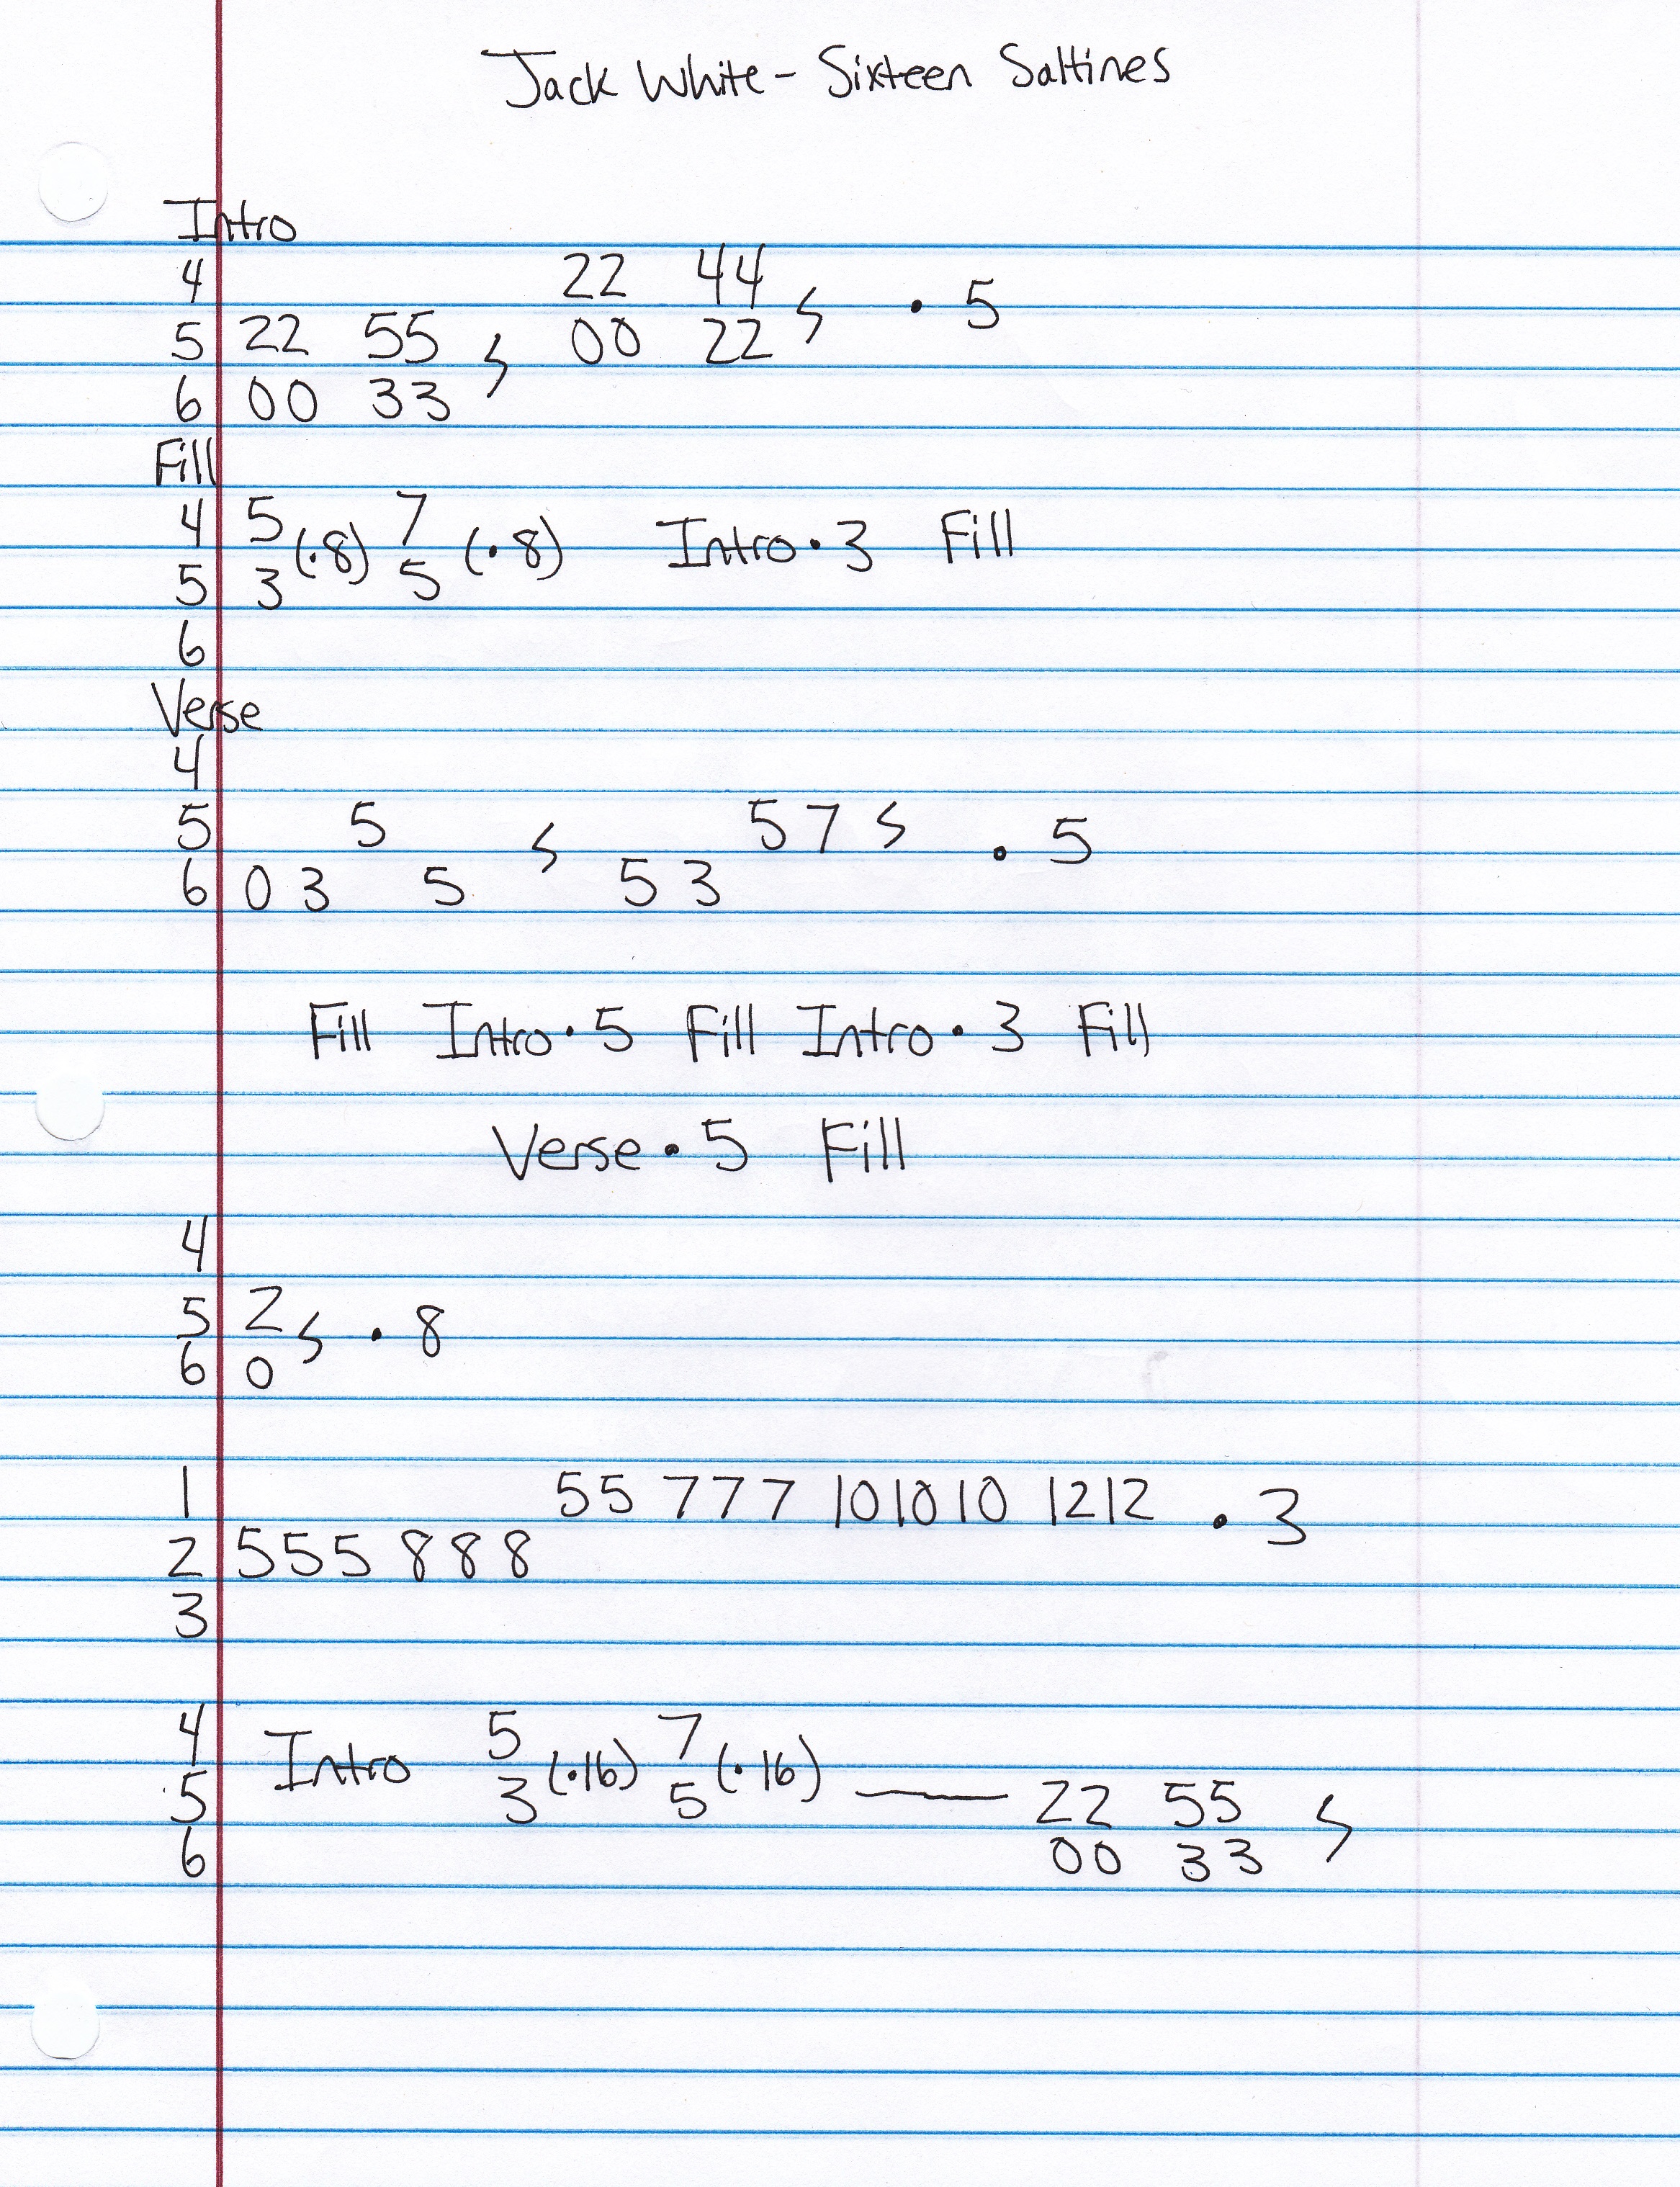 Jack White - Sixteen Saltines
Intro
4 22 44
5 22 55 𝄽 00 22 𝄽 · 5
6 00 33
Fill
4 5 (·8) 7 (·8) Intro · 3 Fill
5 3 5
6
Verse
4
5 5 𝄽 5 7 𝄽 · 5
6 0 3 5 5 3
Fill Intro · 5 Fill Intro · 3 Fill
Verse · 5 Fill
4
5 2 𝄽 · 8
6 0
1 55 777 101010 1212 · 3
2 555 888
3
4 Intro 5 (·16) 7 (·16)
5 3 5 — 22 55 𝄽
6 00 33